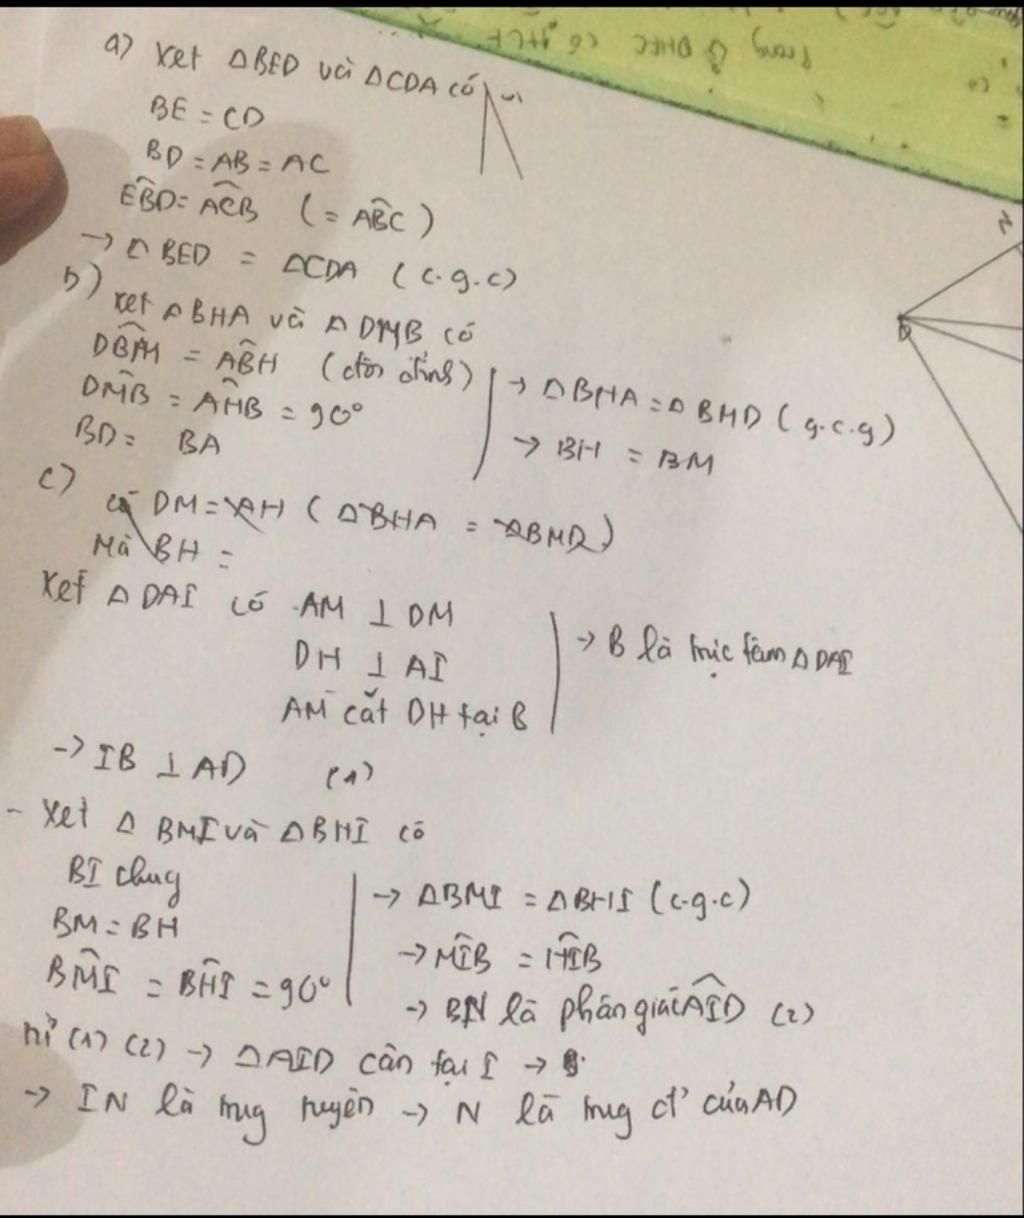 a) Xét ΔBED và ΔCDA có
BE = CD
BD = AB = AC
EBD̂ = ACB̂ (= ABĈ)
→ Δ BED = ΔCDA (c.g.c)
b) xét ΔBHA và Δ DMB có
DBM̂ = ABĤ (đối đỉnh)
DMB̂ = AHB̂ = 90°
BD = BA
→ ΔBHA = Δ BMD (g.c.g)
→ BH = BM
c) có DM = AH (ΔBHA = ΔBMD)
Mà BH =
Xét Δ DAI có AM ⊥ DM
DH ⊥ AI
AM cắt DH tại B
→ B là trực tâm Δ DAI
→ IB ⊥ AD (1)
- Xét Δ BMI và ΔBHI có
BI chug
BM = BH
BMÎ = BHÎ = 90°
→ ΔBMI = ΔBHI (c.g.c)
→ MIB̂ = HIB̂
→ BN là phân giác AID̂ (2)
từ (1) (2) → ΔAID cân tại I →
→ IN là trug tuyến → N là trug đ' của AD